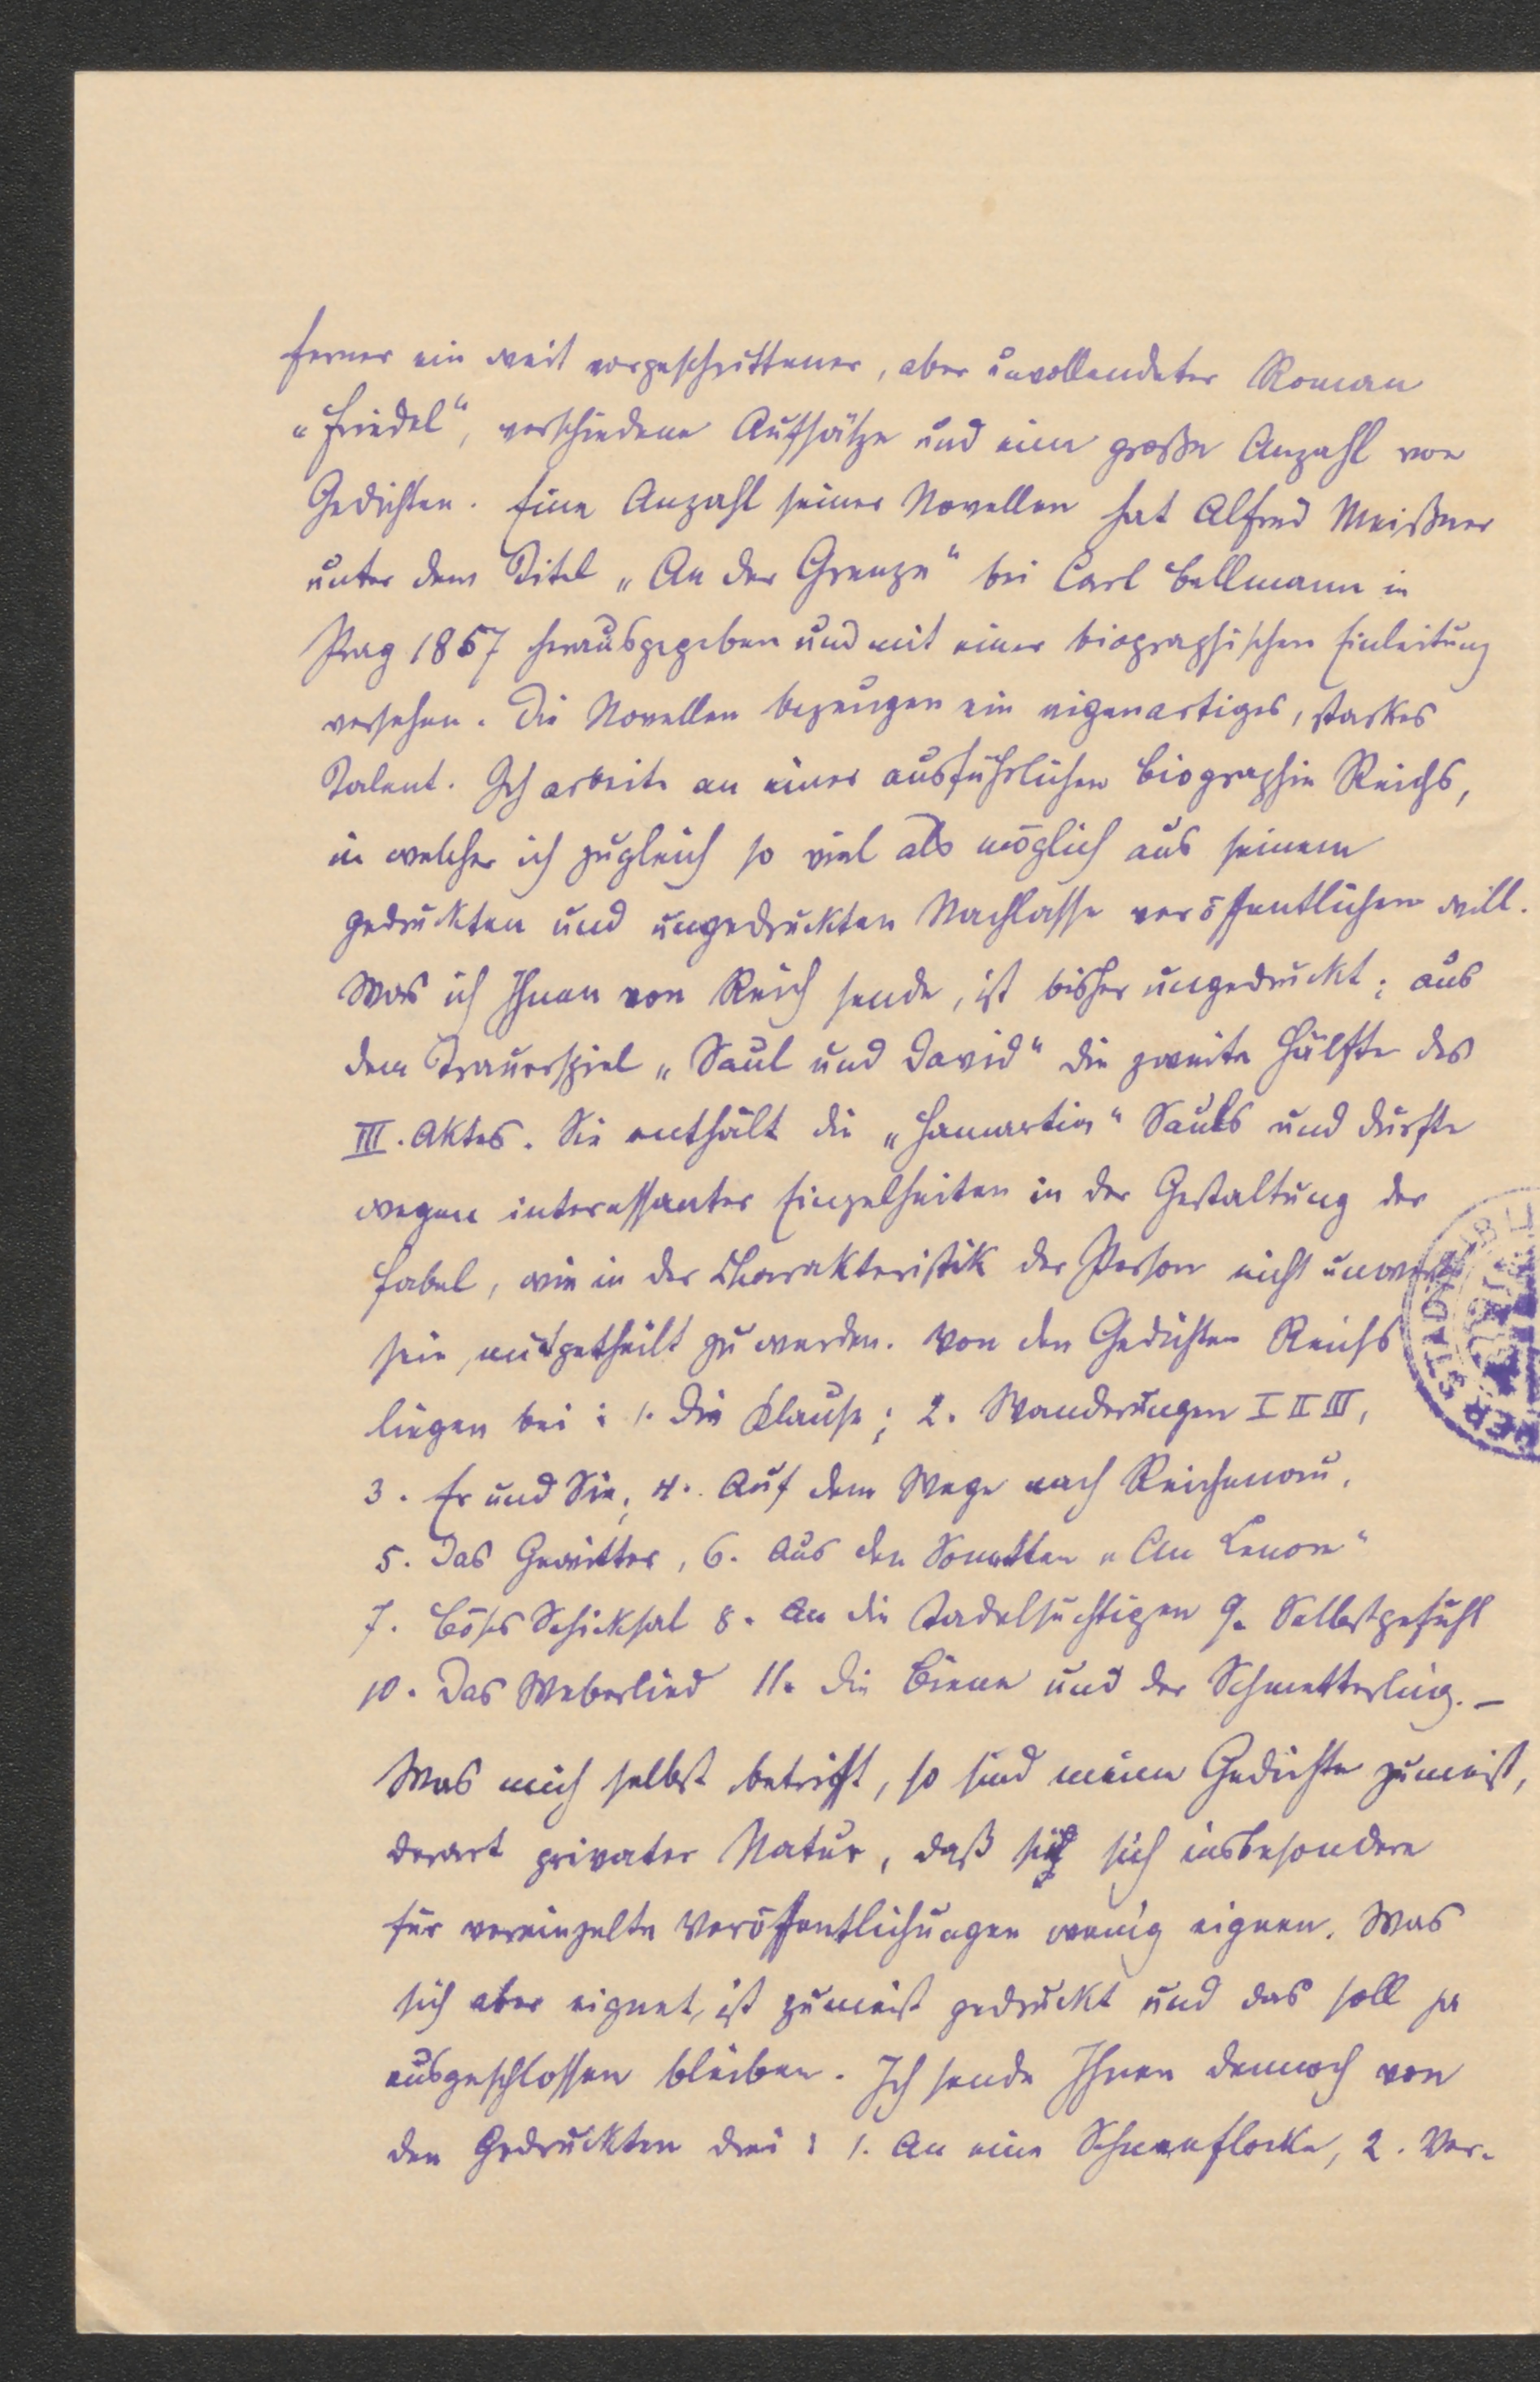 ferner ein weit vorgeschrittener, aber unvollendeter Roman
„Friedel“, verschiedene Aufsätze und eine große Anzahl von
Gedichten. Eine Anzahl seiner Novellen hat Alfred Meißner
unter dem Titel „An der Grenze“ bei Carl Bellmann in
Prag 1867 herausgegeben und mit einer biographischen Einleitung
versehen. Die Novellen bezeugen ein eigenartiges, starkes
Talent. Ich arbeite an einer ausführlichen Biographie Reichs,
in welcher ich zugleich so viel als möglich aus seinem
gedruckten und ungedruckten Nachlasse veröffentlichen will.
Was ich Ihnen von Reich sende, ist bisher ungedruckt: aus
dem Trauerspiel „Saul und David“ die zweite Hälfte des
III. Aktes. Sie enthält die „Hamartia“ Sauls und dürfte
wegen interessanter Einzelheiten in der Gestaltung der
Fabel, wie in der Charakteristik der Person nicht unwerth
sein, mitgetheilt zu werden. Von den Gedichten Reichs
liegen bei: 1. Die Klause; 2. Wanderungen I II III,
3. Er und Sie; 4. Auf dem Wege nach Reichenau,
5. Das Gewitter, 6. Aus den Sonetten „An Lenore“
7. Böses Schicksal 8. An die Tadelsüchtigen 9. Selbstgefühl
10. Das Weberlied 11. Die Biene und der Schmetterling. –
Was mich selbst betrifft, so sind meine Gedichte zumeist,
derart privater Natur, daß sie sich insbesondere
für vereinzelte Veröffentlichungen wenig eignen. Was
sich aber eignet, ist zumeist gedruckt und das soll ja
ausgeschlossen bleiben. Ich sende Ihnen dennoch von
den Gedruckten drei: 1. An eine Schneeflocke, 2. Ver-